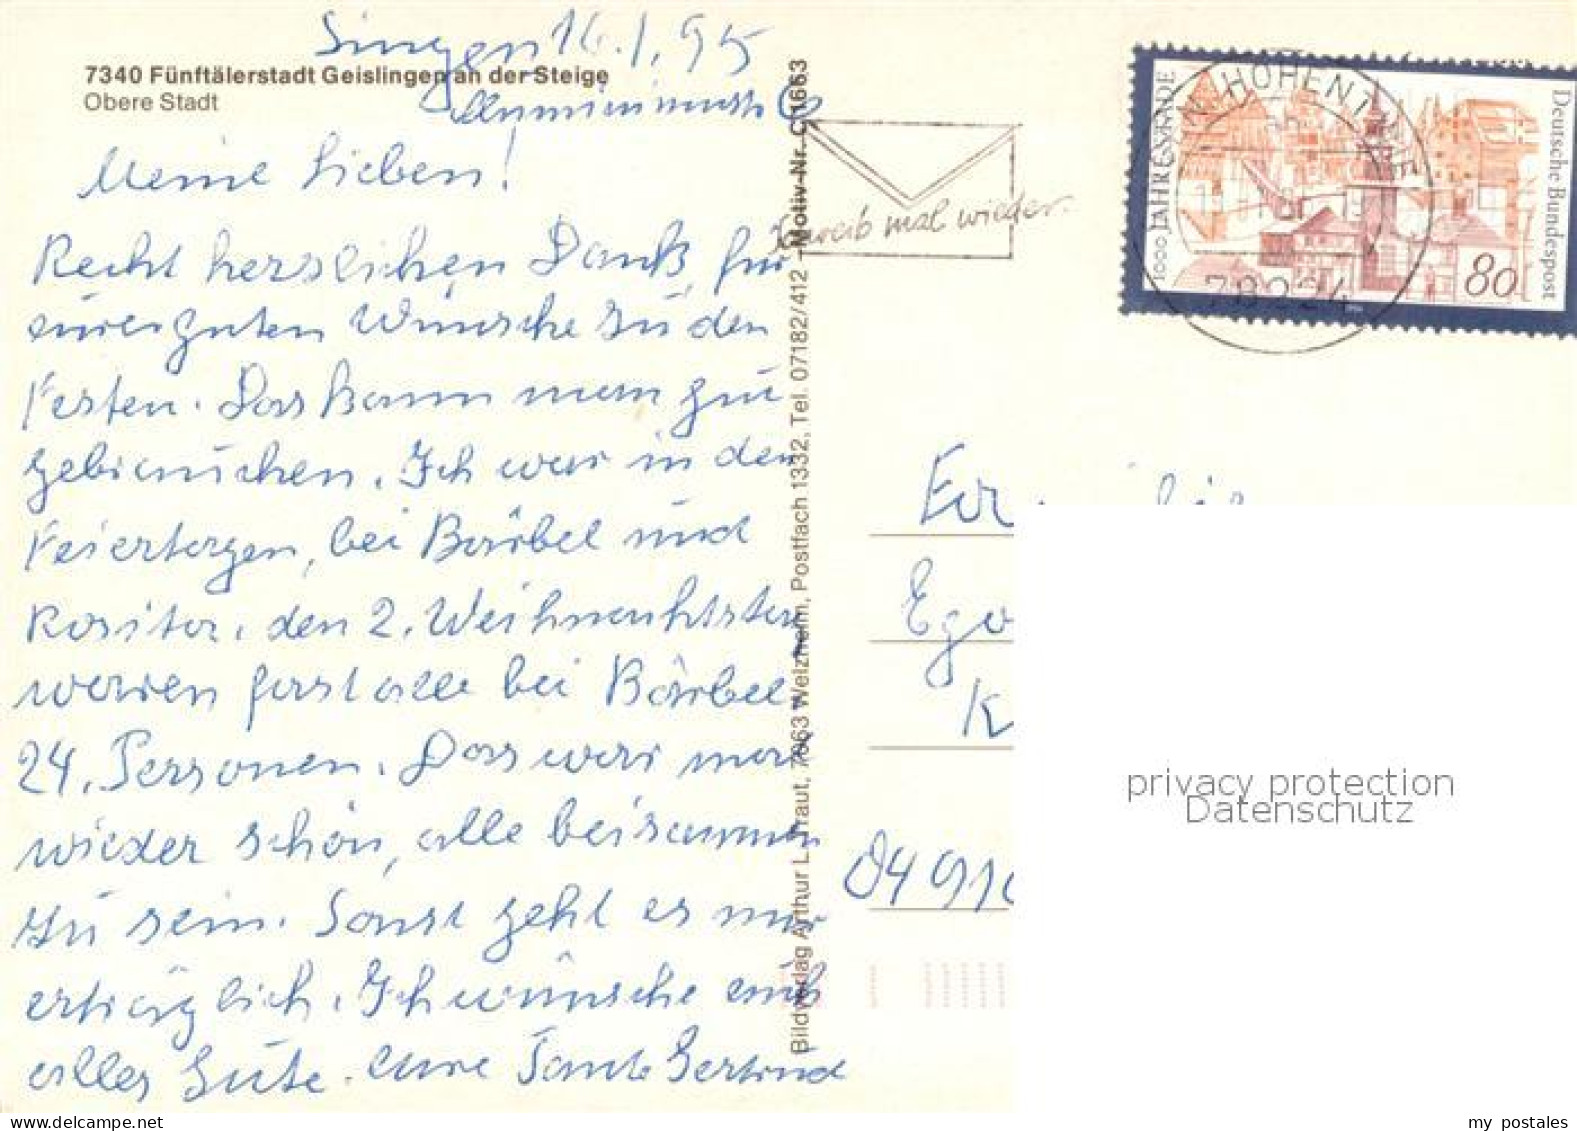 Singen 16.1.95
7340 Fünftälerstadt Geislingen an der Steige
Obere Stadt
Meine Lieben!
Recht herzlichen Dank, für
eure guten Wünsche zu den
Festen. Das kann man gut
gebrauchen. Ich war in den
Feiertagen, bei Bärbel und
Rosita, den 2. Weihnachtstag
waren fast alle bei Bärbel
24. Personen. Das war mal
wieder schön, alle beisammen
zu sein. Sonst geht es mir
erträglich. Ich wünsche euch
alles Gute. eure Tante Gertrud
Bildverlag Arthur L. Traut, 7063 Welzheim, Postfach 1332, Tel. 07182/412 – Motiv-Nr. C 1663
Schreib mal wieder.
1000 JAHRE STADE
Deutsche Bundespost
80
HOHENTWIEL
78224
Ego
K
04 91
privacy protection
Datenschutz
my postales